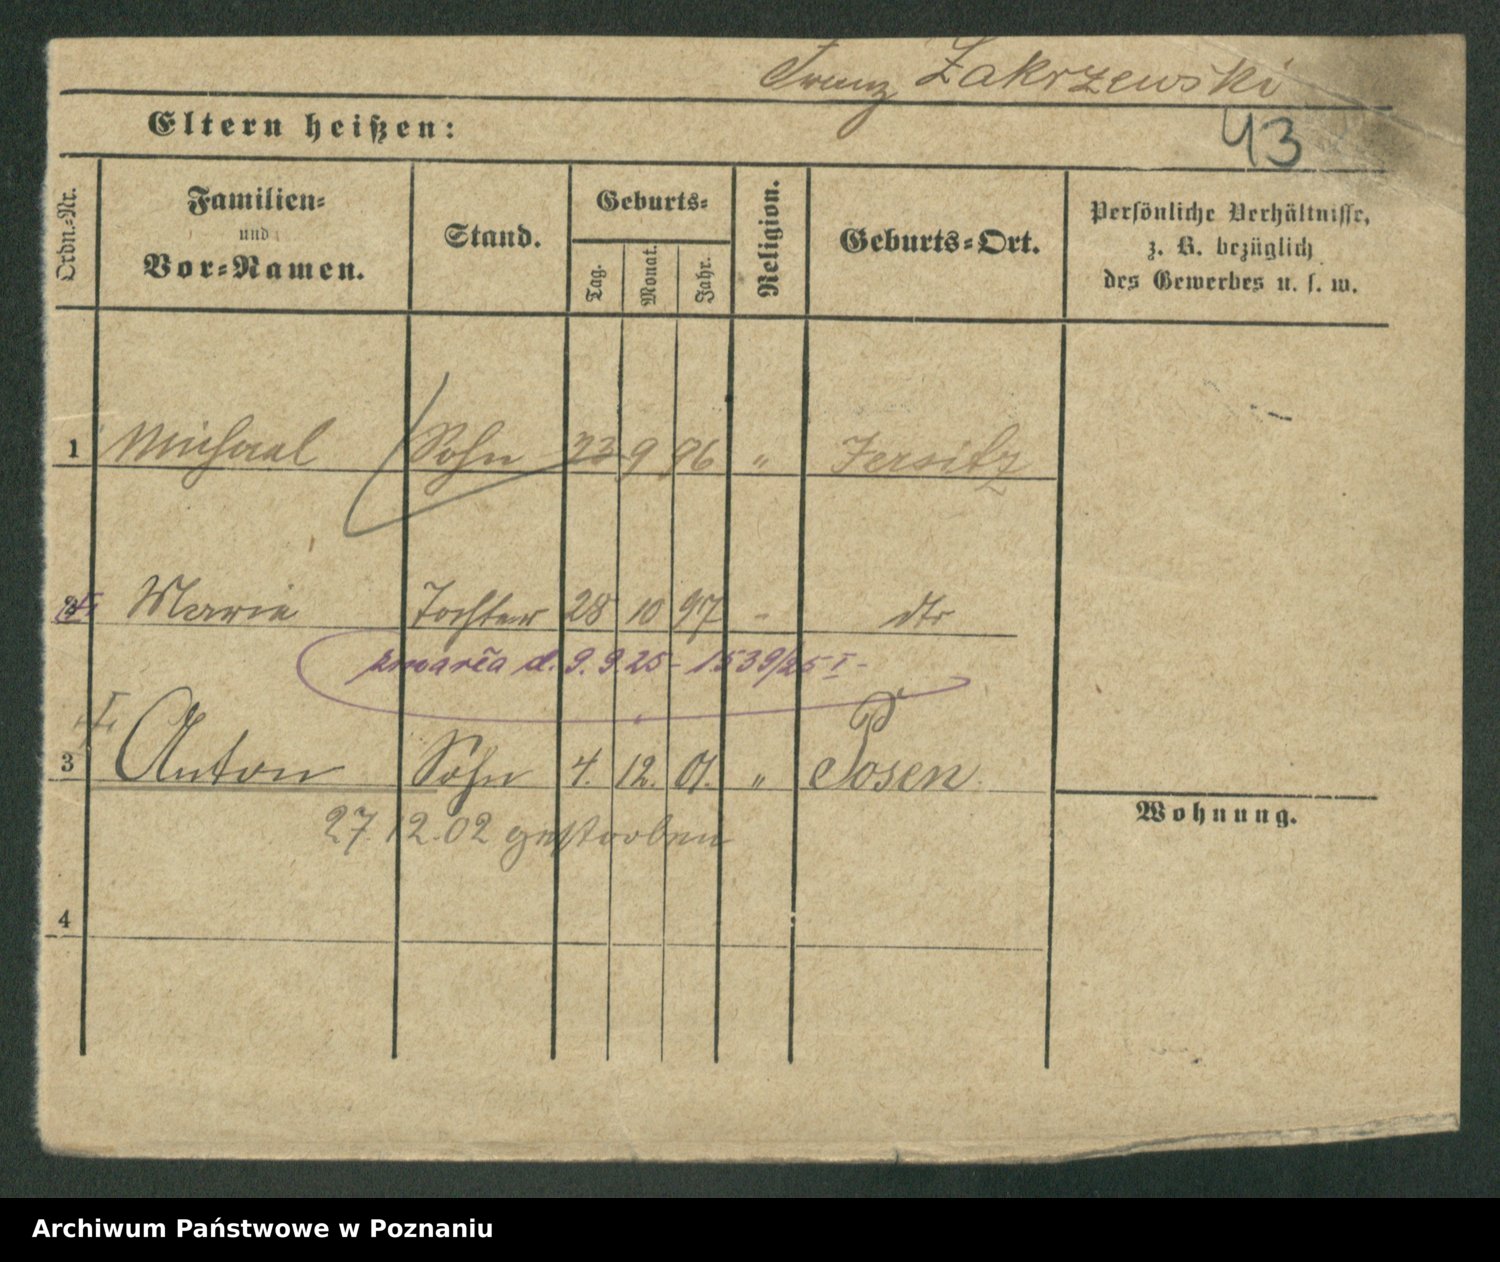 Franz Zakrzewski
43
Eltern heißen:
Ordn.-Nr.
Familien-
und
Vor-Namen.
Stand.
Geburts-
Tag.
Monat.
Jahr.
Religion.
Geburts-Ort.
Persönliche Verhältnisse,
z. B. bezüglich
des Gewerbes u. s. w.
1 Michael Sohn 23 9 96 " Jersitz
2 Marie Tochter 28 10 97 - dto
zmarła d. 9. 9. 25 - 1539/25 I -
3 Anton Sohn 4. 12. 01. " Posen
27.12.02 gestorben
Wohnung.
4
Archiwum Państwowe w Poznaniu